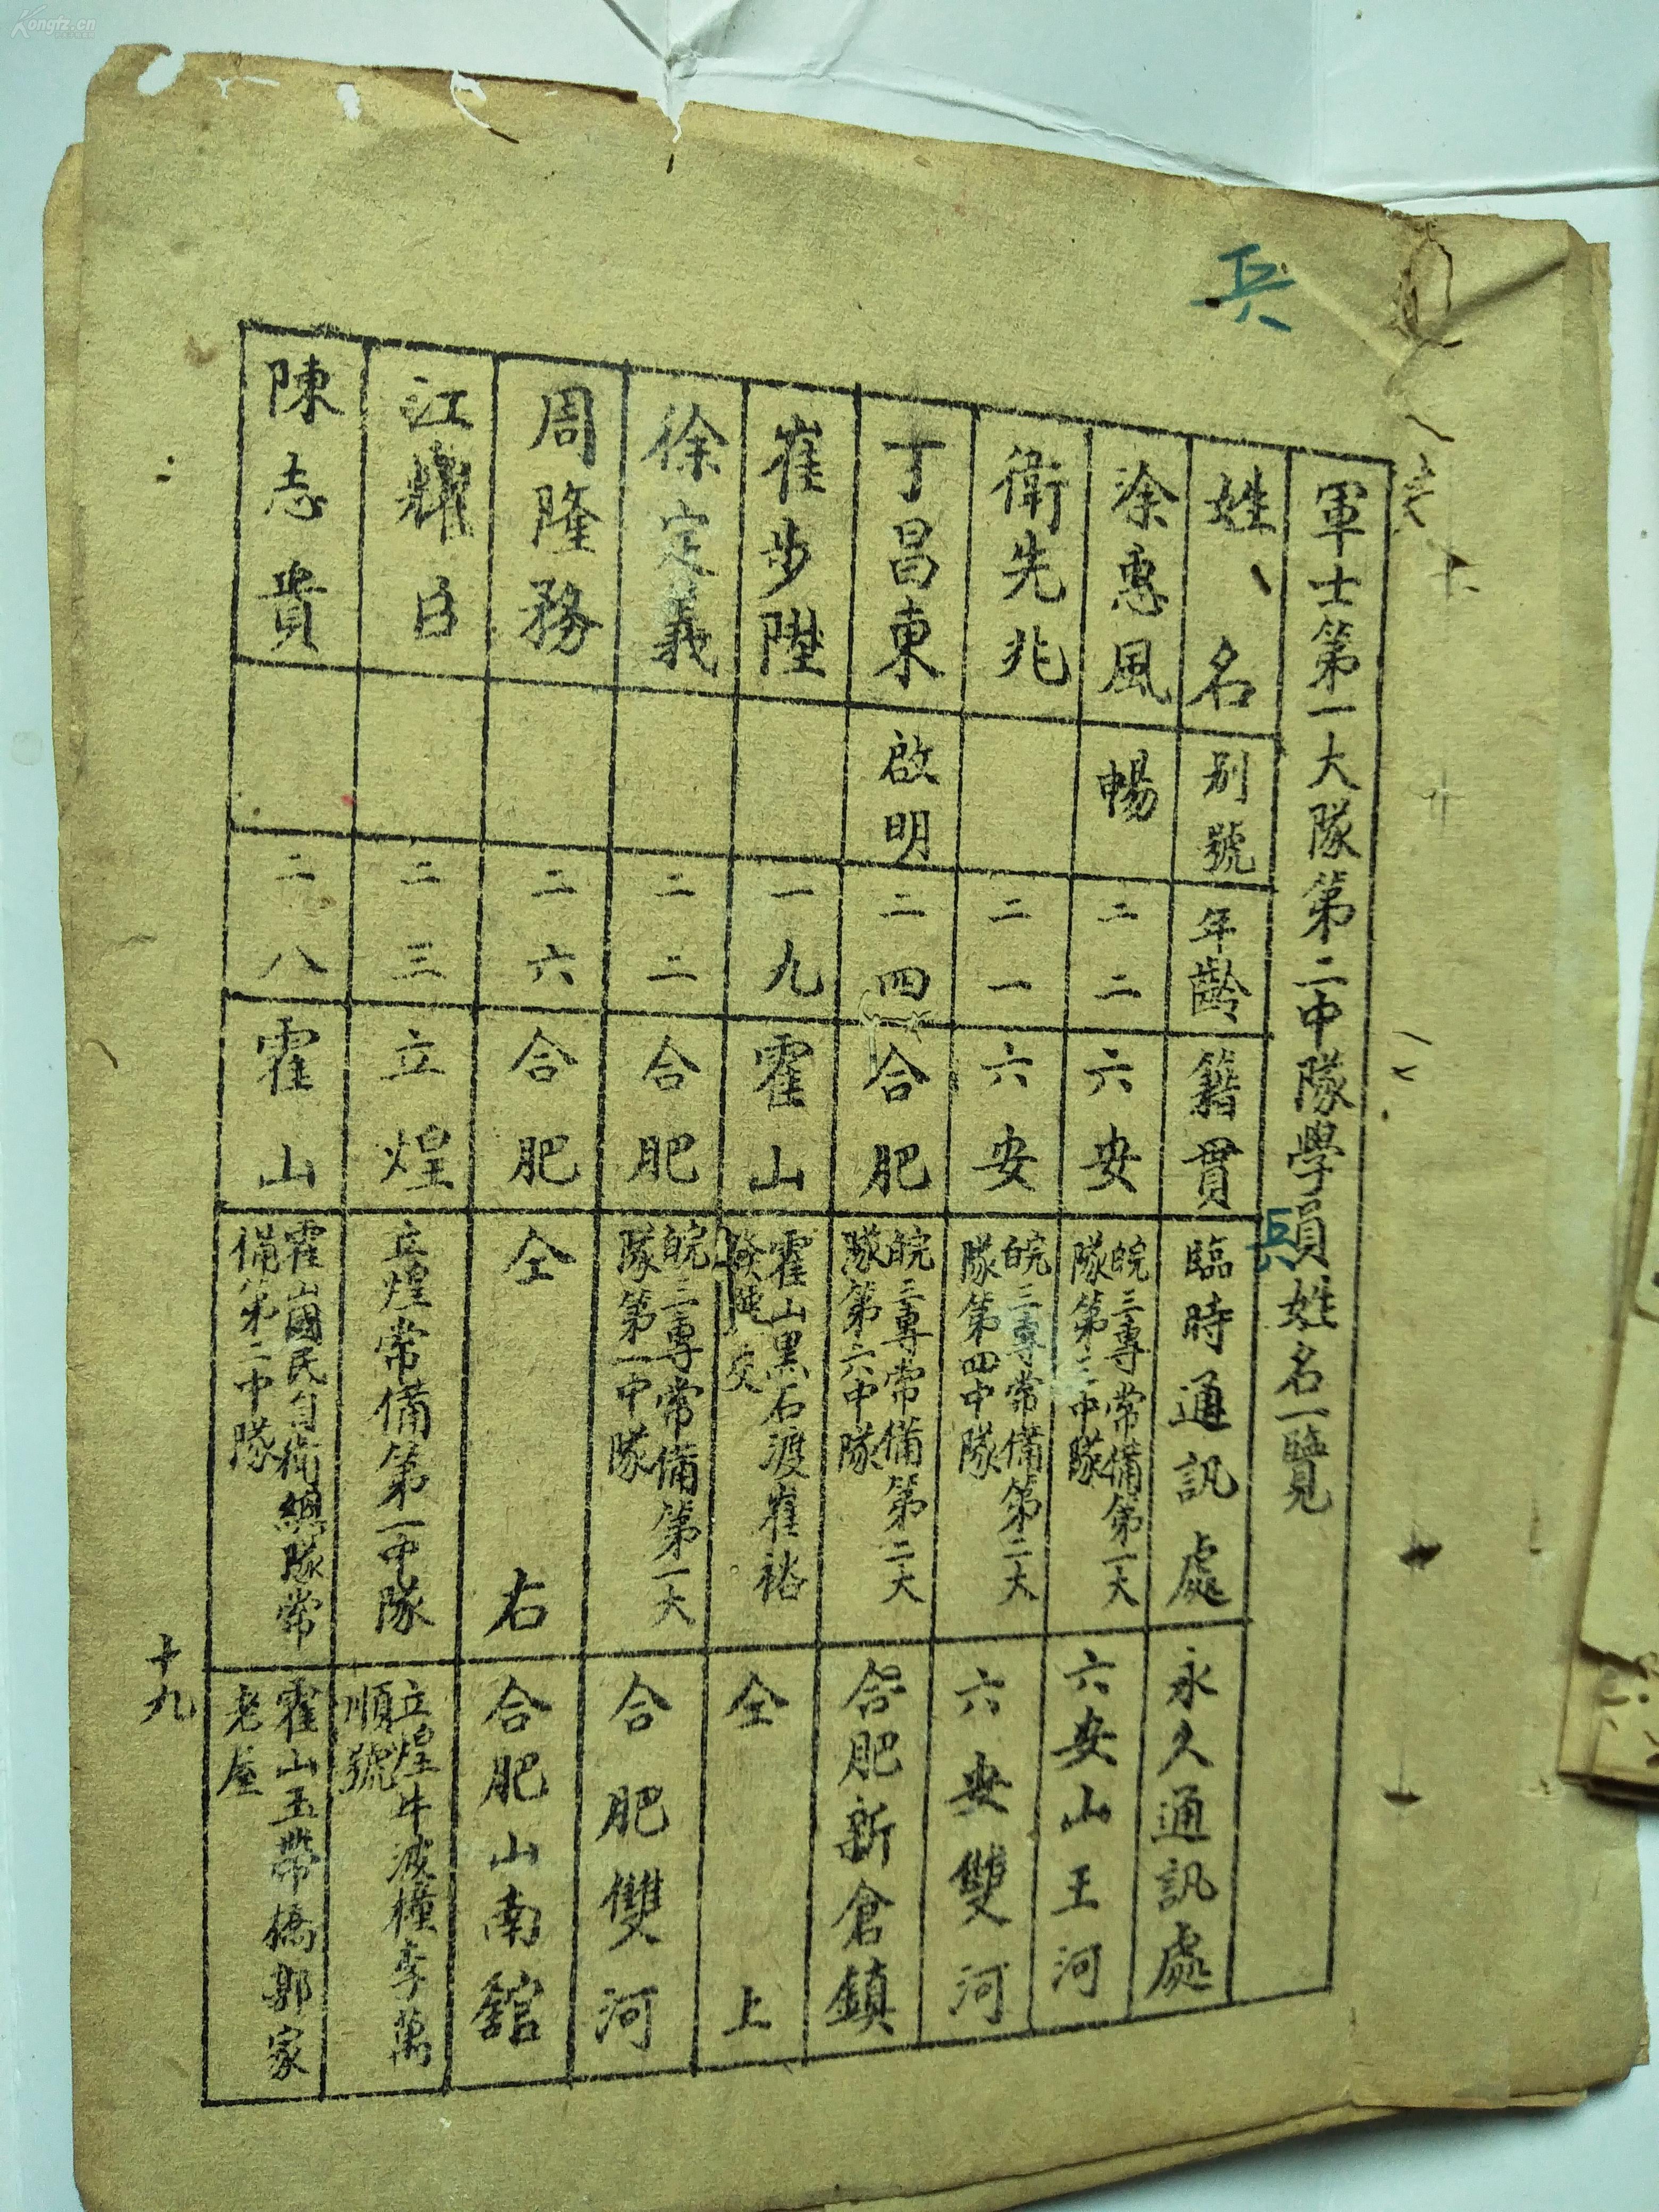 Kongfz.cn
兵
軍士第一大隊第二中隊學員姓名一覽
兵
姓、名 別號 年齡 籍貫 臨時通訊處 永久通訊處
涂惠風 暢 二二 六安 皖三專常備第一大隊第三中隊 六安山王河
衛先兆 二一 六安 皖三專常備第二大隊第四中隊 六安雙河
丁昌東 啟明 二四 合肥 皖三專常備第二大隊第六中隊 合肥新倉鎮
崔步陞 一九 霍山 霍山黑石渡崔裕 交 仝上
徐定義 二二 合肥 皖三專常備第一大隊第一中隊 合肥雙河
周隆務 二六 合肥 仝右 合肥山南舘
江耀白 二三 立煌 立煌常備第一中隊 立煌牛波檀李萬順號
陳志貴 二八 霍山 霍山國民自衛總隊常備第二中隊 霍山玉帶橋郭家老屋
十九